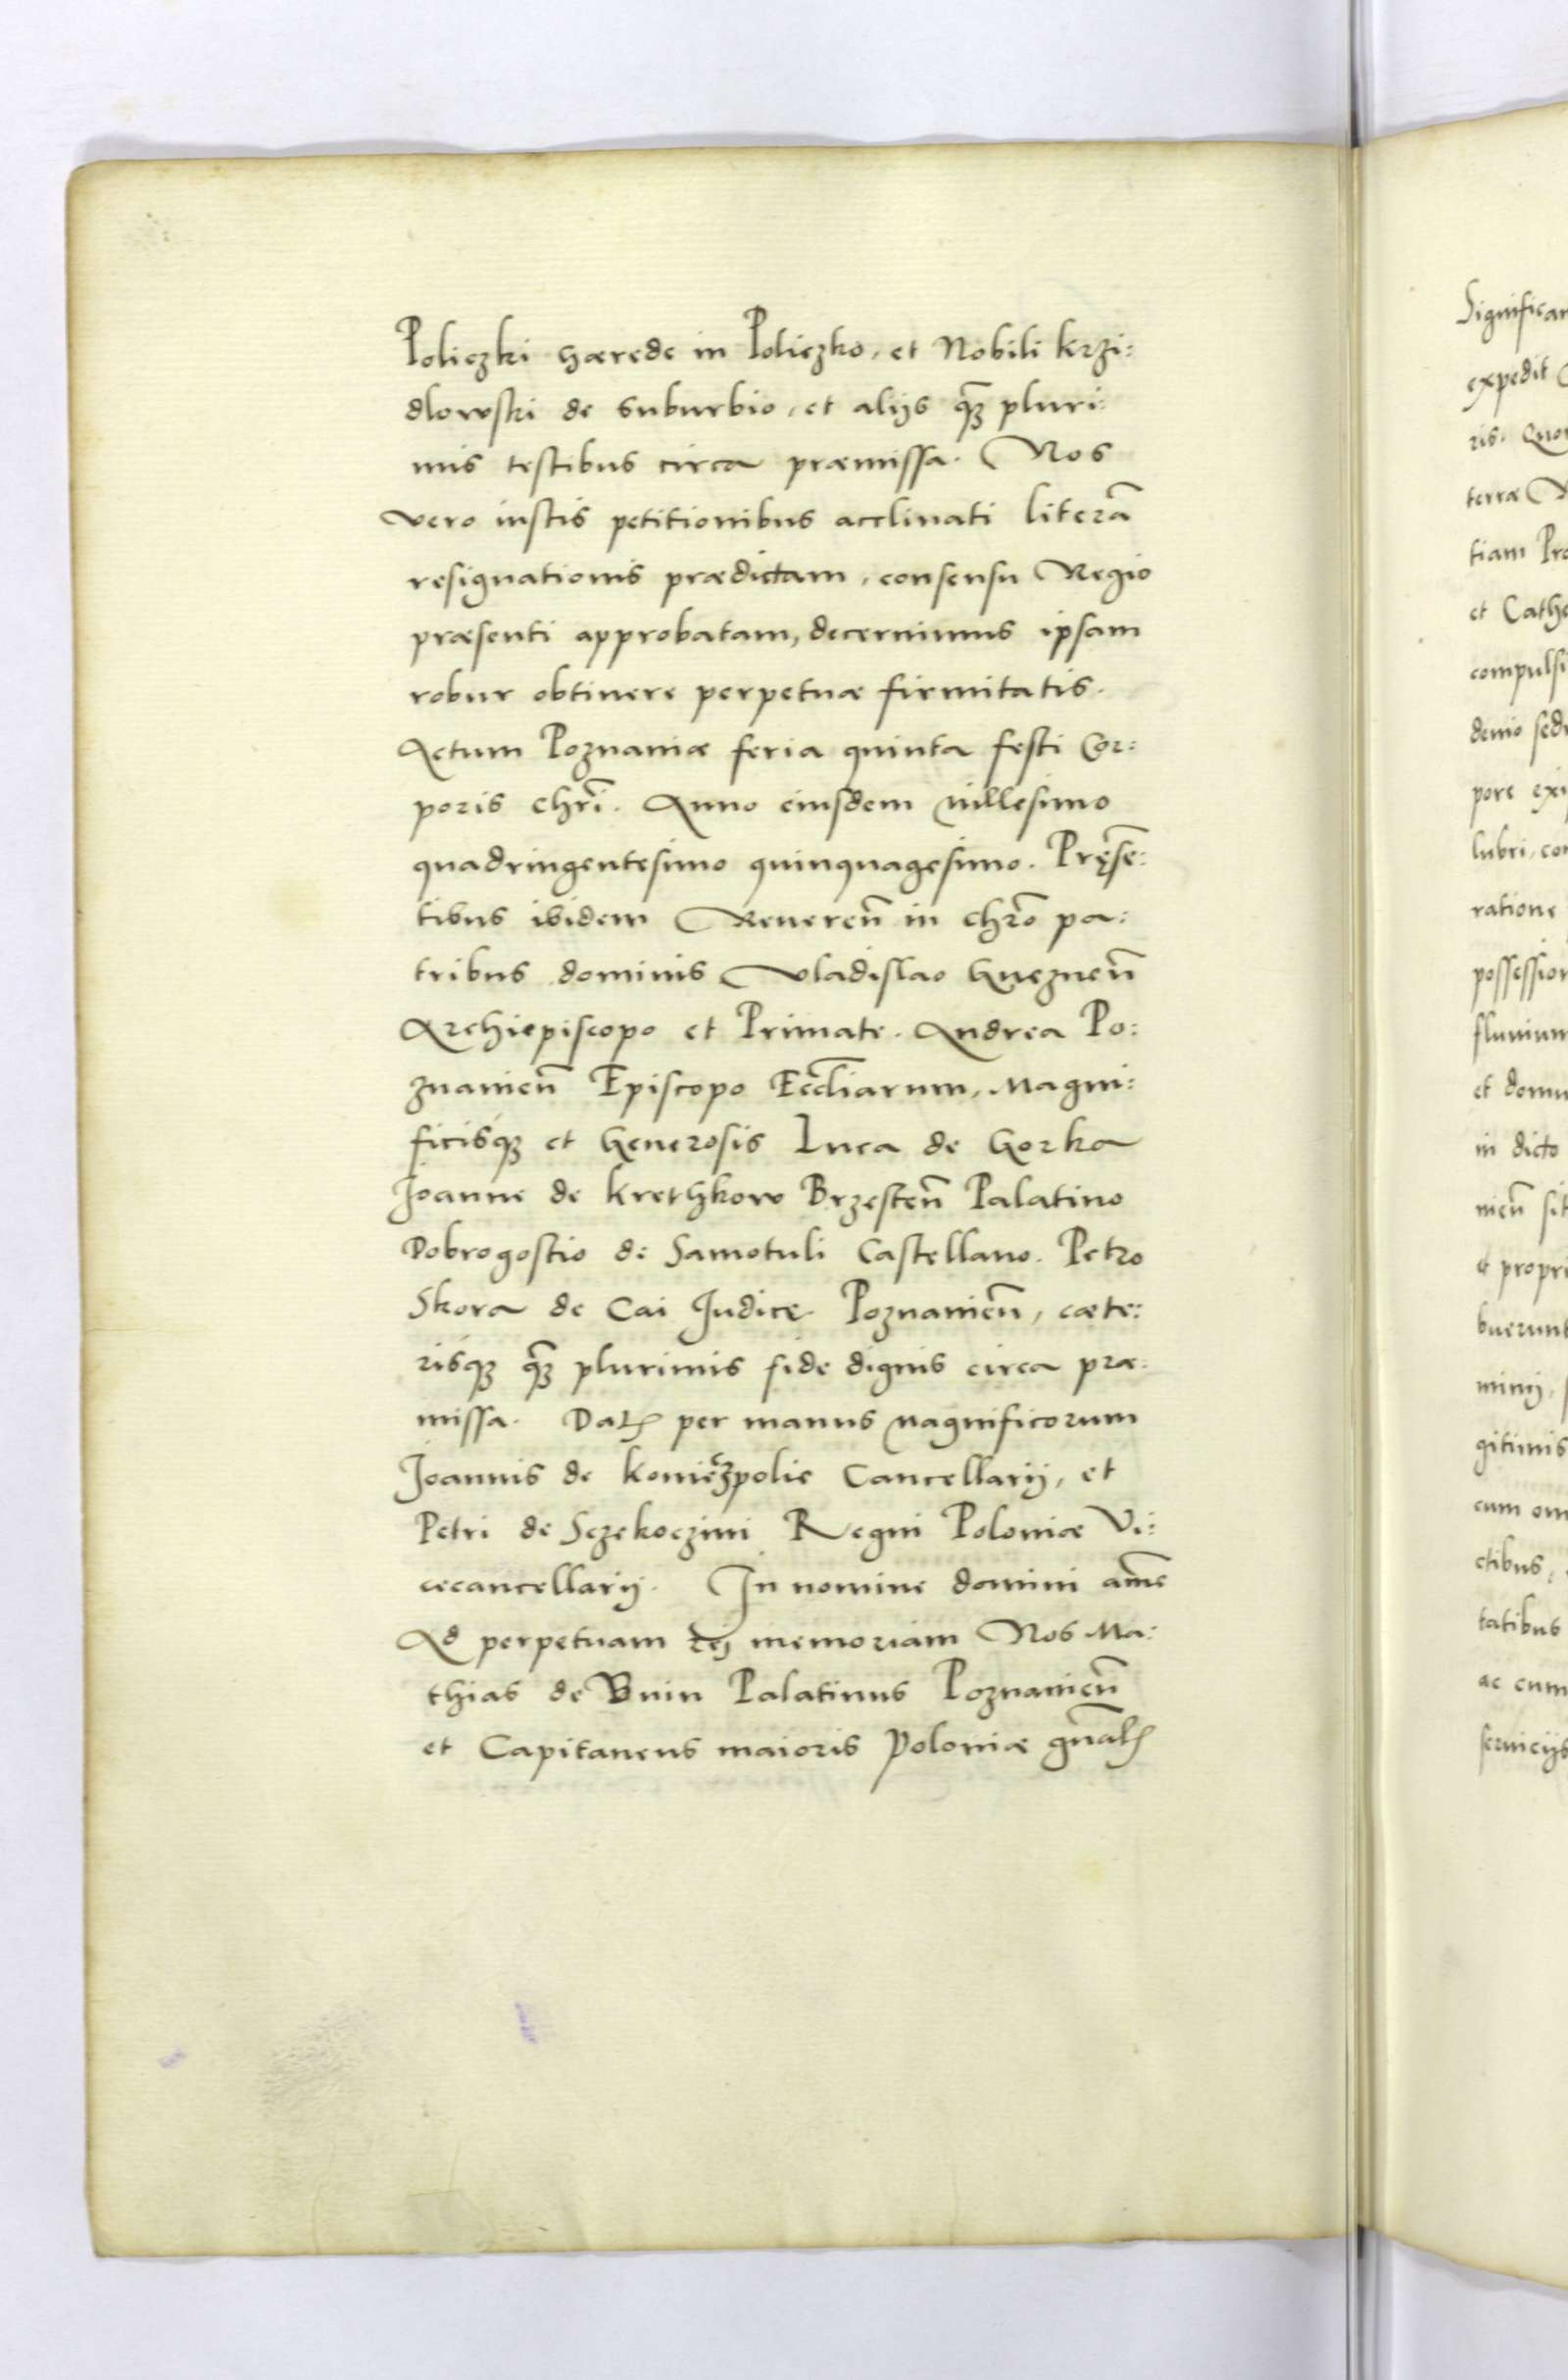 Policzki hærede in Policzko, et Nobili Krzi:
dlowski de suburbio, et alijs qȝ̃ pluri:
mis testibus circa præmissa. Nos
vero iustis petitionibus acclinati literã
resignationis prædictam, consensu Regio
præsenti approbatam, decernimus ipsam
robur obtinere perpetuæ firmitatis.
Actum Poznaniæ feria quinta festi Cor:
poris Chrĩ. Anno eiusdem Millesimo
quadringentesimo quinquagesimo. Pręsẽ:
tibus ibidem Reuereñ in Chrõ pa:
tribus dominis Vladislao Gnezneñ
Archiepiscopo et Primate. Andrea Po:
znanieñ Episcopo Eccĺiarum, Magni:
ficisqȝ et Generosis Luca de Gorka
Joanne de Krethkow Brzesteñ Palatino
Dobrogostio de Samotuli Castellano. Petro
Skora de Cai Judice Poznanieñ, cæte:
risqȝ qȝ̃ plurimis fide dignis circa præ:
missa. Datꝭ per manus magnificorum
Joannis de Konieczpolie Cancellarij, et
Petri de Sczekoczini Regni Poloniæ Vi:
cecancellarij. In nomine domini amẽ
Ad perpetuam rej memoriam Nos Ma:
thias de Bnin Palatinus Poznanieñ
et Capitaneus maioris Poloniæ gñalꝭ
Significan
expedit
ris. Quo
terræ
tiam Pro
et Cathe
compulsi
denio sed
pore exi
lubri, con
ratione
possession
fluuium
et domu
in dicto
nieñ sit
et propri
buerunt
minij,
gitimis
cum om
ctibus,
tatibus
ac cum
seruicijs